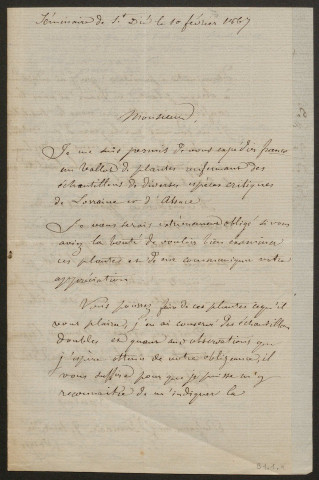 Séminaire de St Dié le 10 février 1867
Monsieur,
Je me suis permis de vous expédier franco
un ballot de plantes renfermant des
échantillons de diverses espèces critiques
de Lorraine et d'Alsace
Je vous serais extrêmement obligé si vous
aviez la bonté de vouloir bien examiner
ces plantes et de me communiquer votre
appréciation.
Vous pouvez faire de ces plantes ce qu'il
vous plaira, j'en ai conservé des échantillons
doubles et quant aux observations que
j'espère obtenir de votre obligeance, il
vous suffira pour que je puisse m'y
reconnaître de m'indiquer la